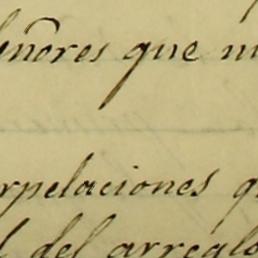 señores que
rpelaciones
del arreglo